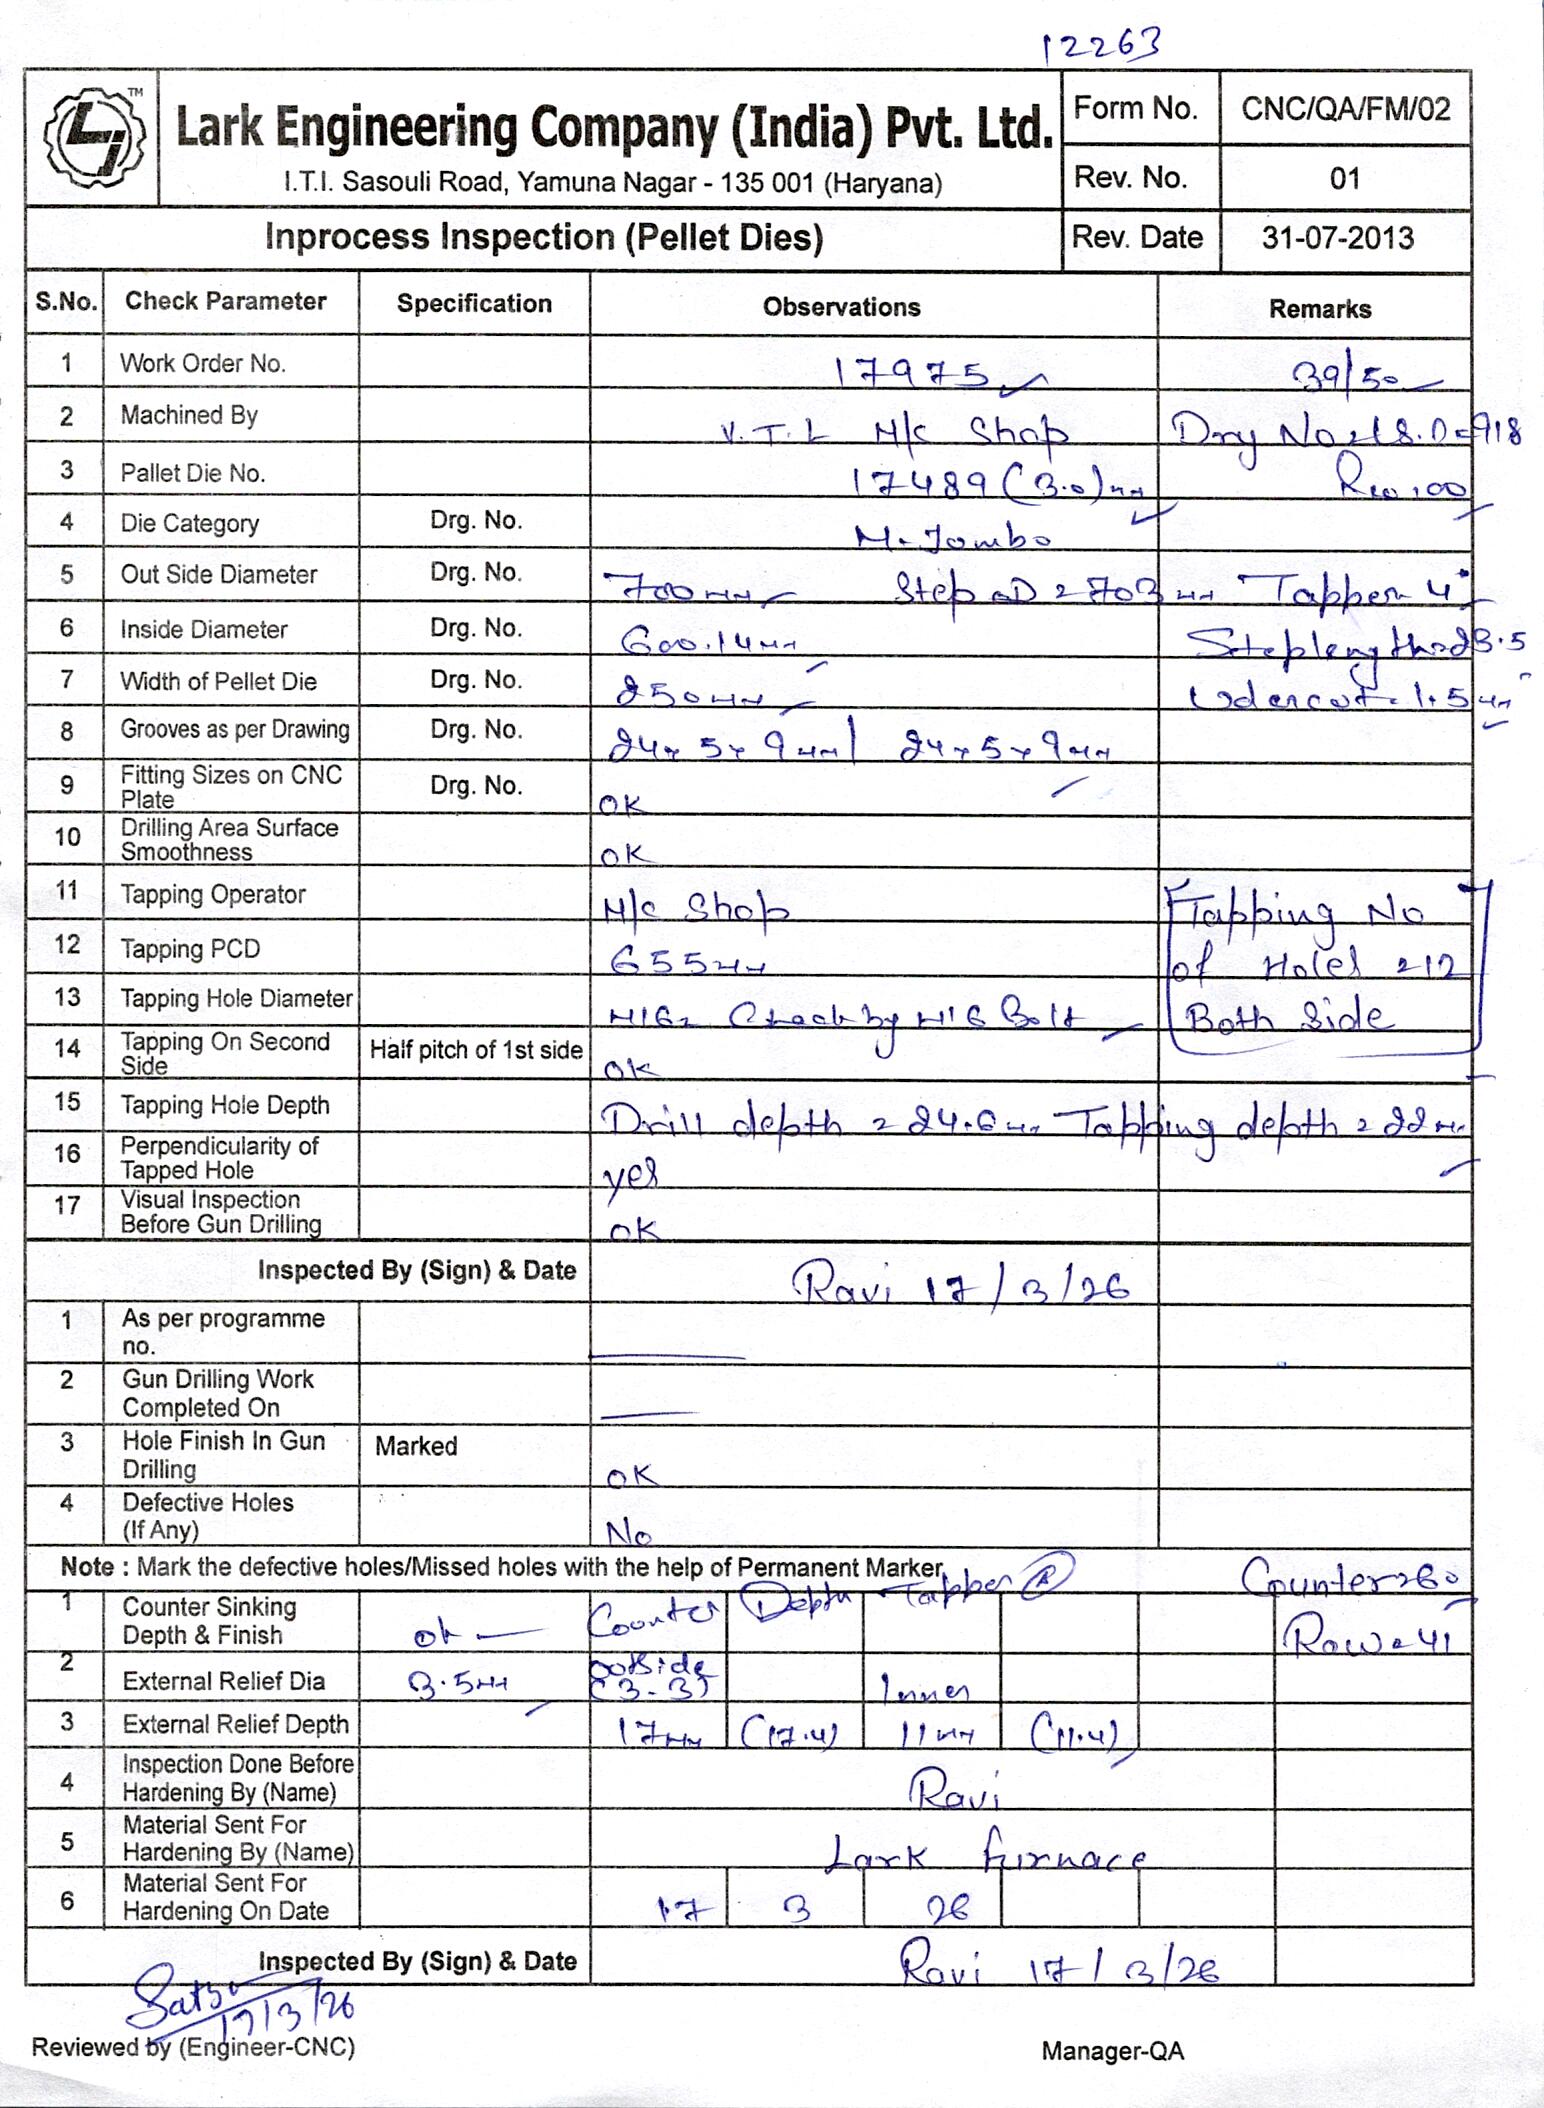 12263
TM
Lark Engineering Company (India) Pvt. Ltd.
I.T.I. Sasouli Road, Yamuna Nagar - 135 001 (Haryana)
Form No. CNC/QA/FM/02
Rev. No. 01
Inprocess Inspection (Pellet Dies)
Rev. Date 31-07-2013
S.No. Check Parameter Specification Observations Remarks
1 Work Order No. 17975 39/50
2 Machined By V.T.L M/c Shop
3 Pallet Die No. 17489 (3.0)mm
4 Die Category Drg. No. M. Jombo
5 Out Side Diameter Drg. No. 700mm Step OD = 703mm Tapper 4°
6 Inside Diameter Drg. No. 600.14mm
7 Width of Pellet Die Drg. No. 250mm 1.5mm
8 Grooves as per Drawing Drg. No. 24x5x9mm | 24x5x9mm
9 Fitting Sizes on CNC Plate Drg. No. OK
10 Drilling Area Surface Smoothness OK
11 Tapping Operator M/c Shop Tapping No
12 Tapping PCD 655mm of Holes = 12
13 Tapping Hole Diameter M16= Check by M16 Bolt Both Side
14 Tapping On Second Side Half pitch of 1st side OK
15 Tapping Hole Depth Drill depth = 24.6mm Tapping depth = 22mm
16 Perpendicularity of Tapped Hole yes
17 Visual Inspection Before Gun Drilling OK
Inspected By (Sign) & Date Ravi 17/3/26
1 As per programme no.
2 Gun Drilling Work Completed On
3 Hole Finish In Gun Drilling Marked OK
4 Defective Holes (If Any) No
Note : Mark the defective holes/Missed holes with the help of Permanent Marker. Counter=60
1 Counter Sinking Depth & Finish ok Counter Depth Tapper Row=41
2 External Relief Dia 3.5mm outside (3-3) Inner
3 External Relief Depth 17mm (17.4) 11mm (11.4)
4 Inspection Done Before Hardening By (Name) Ravi
5 Material Sent For Hardening By (Name) Lark furnace
6 Material Sent For Hardening On Date 17 3 26
Inspected By (Sign) & Date Ravi 17/3/26
17/3/26
Reviewed by (Engineer-CNC) Manager-QA